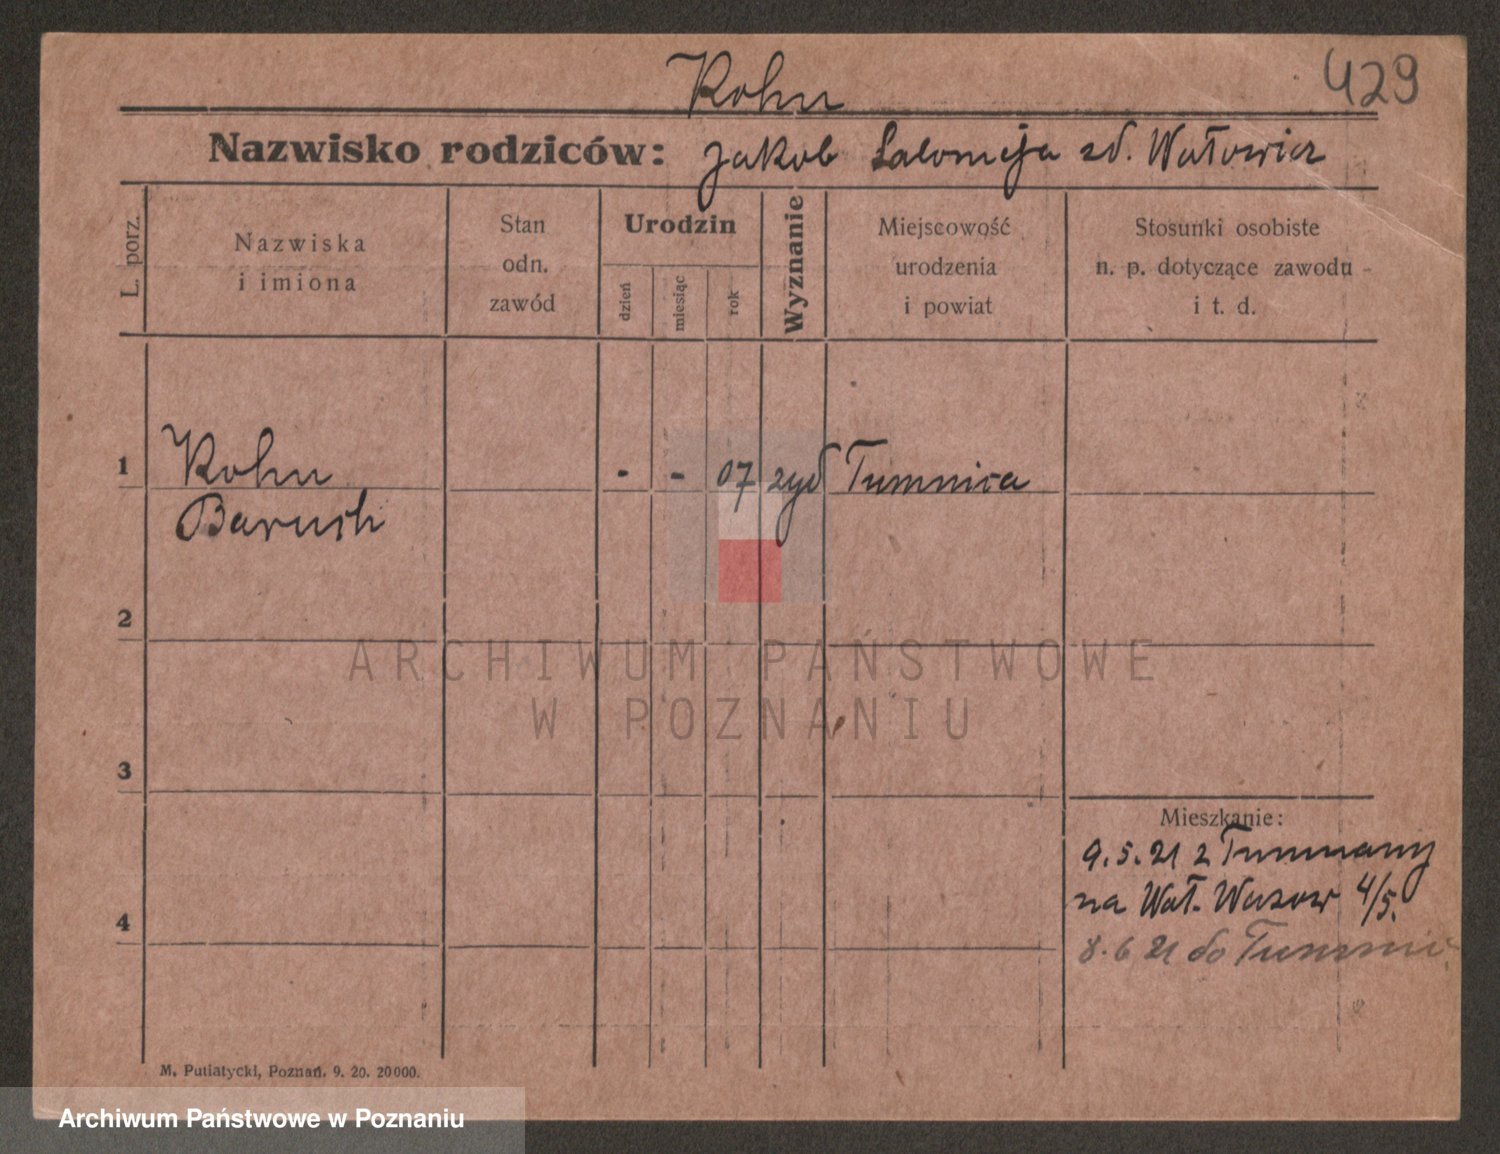 Kohn
429
Nazwisko rodziców: Jakob Salomeja zd. Wałowicz
L. porz.
Nazwiska
i imiona
Stan
odn.
zawód
Urodzin
dzień
miesiąc
rok
Wyznanie
Miejscowość
urodzenia
i powiat
Stosunki osobiste
n. p. dotyczące zawodu
i t. d.
1 Kohn - - 07 żyd Tumnica
Baruch
2
3
4
Mieszkanie:
9.5.21 z
na Wał. 4/5.
8.6 21 do
M. Putiatycki, Poznań. 9. 20. 20000.
ARCHIWUM PAŃSTWOWE
W POZNANIU
Archiwum Państwowe w Poznaniu